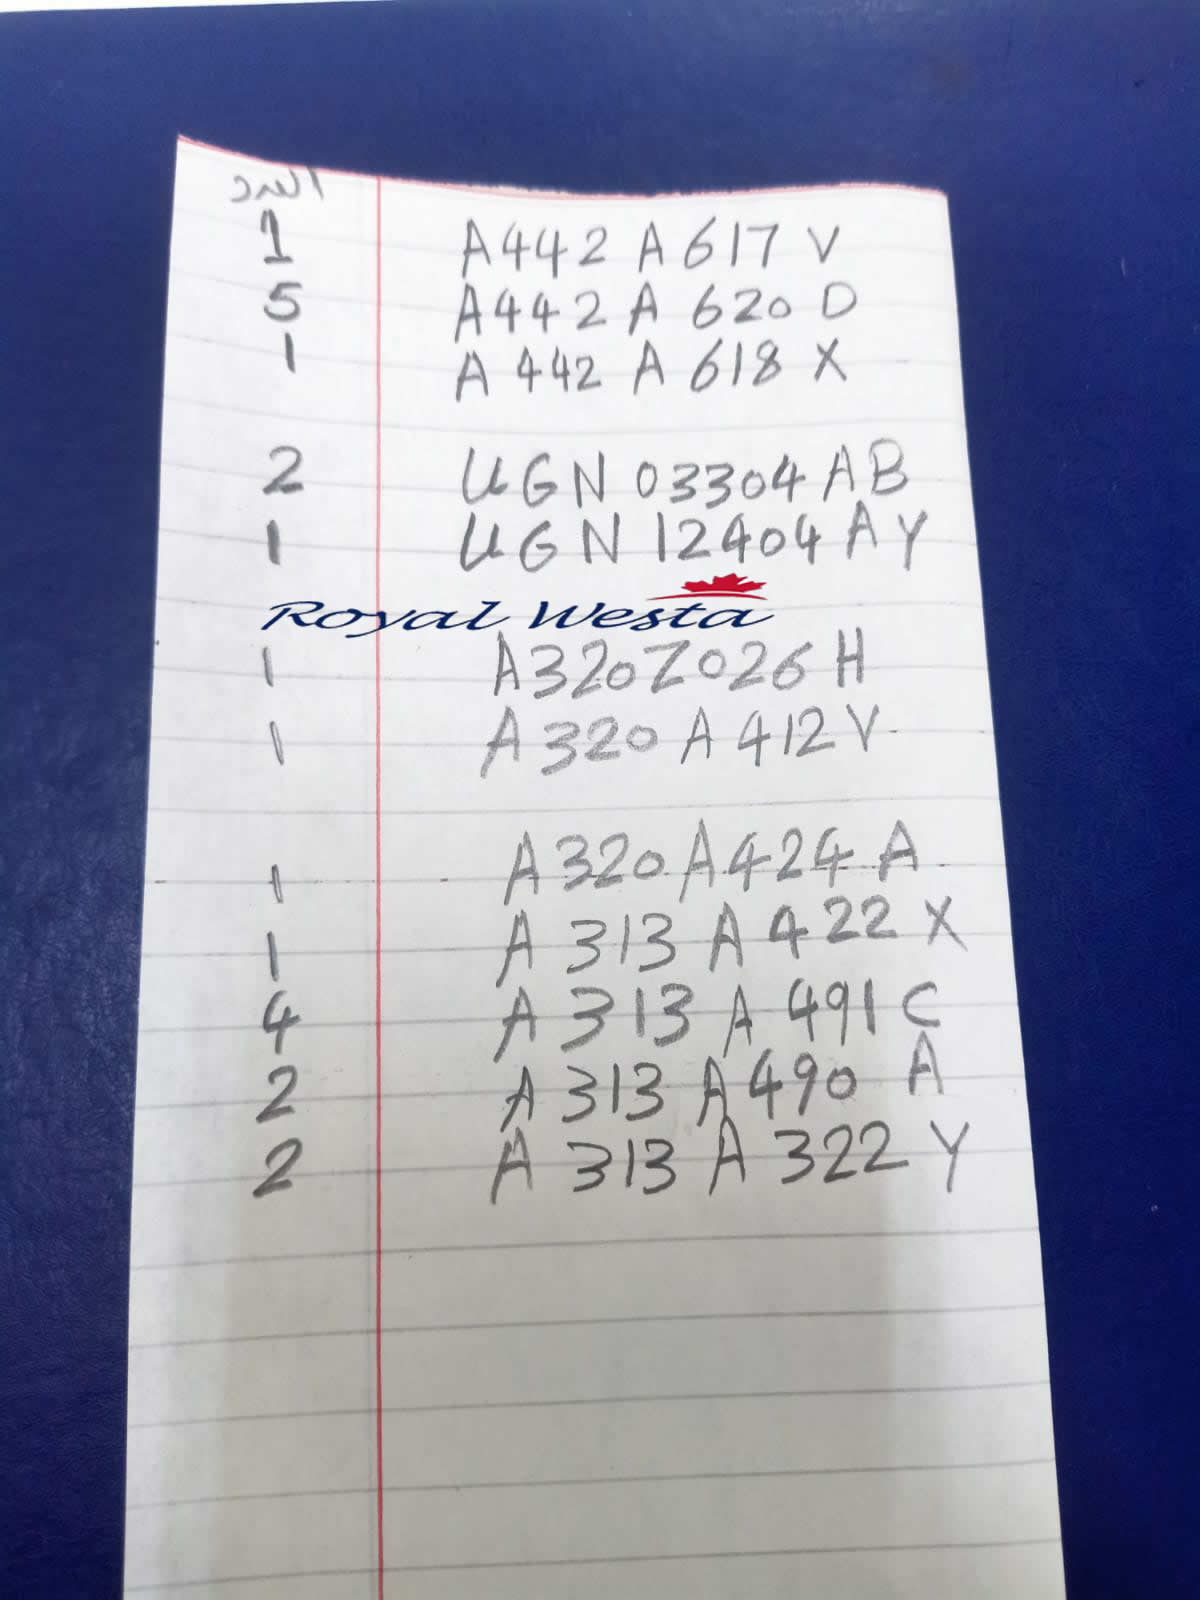 العدد
1 A442 A 617 V
5 A442 A 620 D
1 A 442 A 618 X
2 UGN 03304 AB
1 UGN 12404 AY
Royal Westa
1 A320Z026 H
1 A 320 A 412 V
1 A 320 A 424 A
1 A 313 A 422 X
4 A 313 A 491 C
2 A 313 A 490 A
2 A 313 A 322 Y